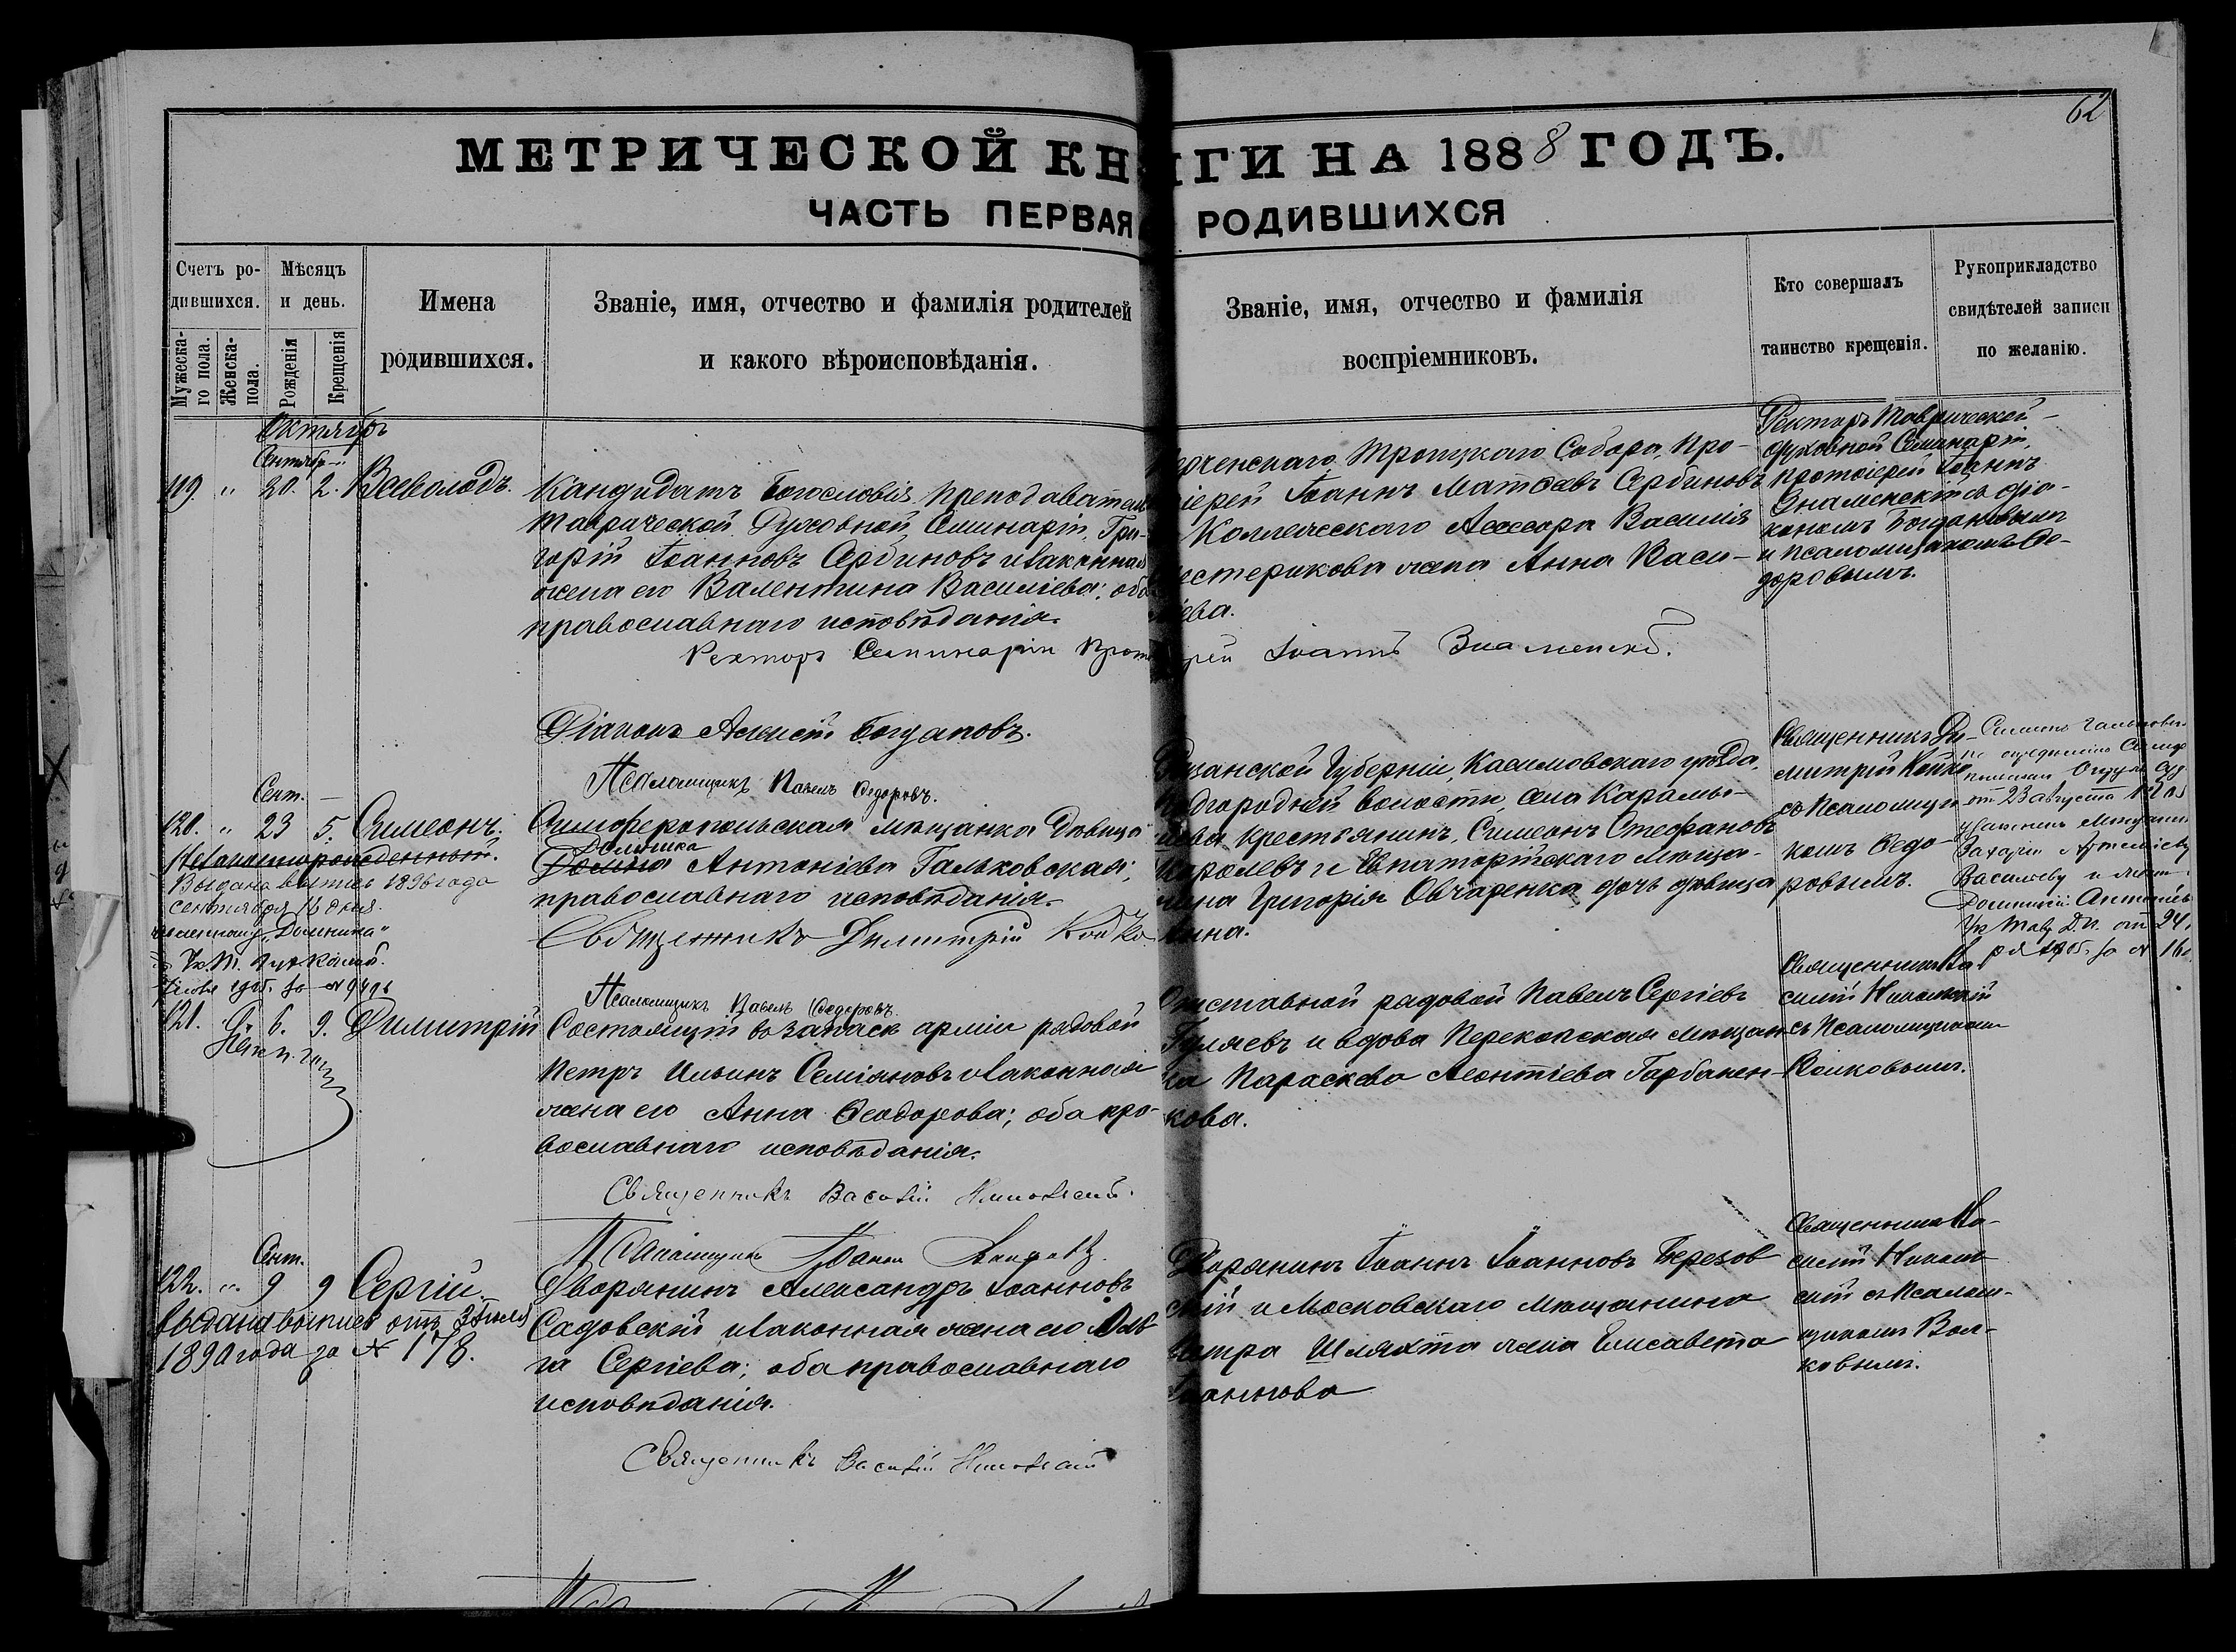 62
МЕТРИЧЕСКОЙ КНИГИ НА 1888 ГОДЪ.
ЧАСТЬ ПЕРВАЯ РОДИВШИХСЯ
Счетъ родившихся.
Мужеска-го пола.
Женска-пола.
Мѣсяцъ и день.
Рожденія
Крещенія
Имена
родившихся.
Званіе, имя, отчество и фамилія родителей
и какого вѣроисповѣданія.
Званіе, имя, отчество и фамилія
воспріемниковъ.
Кто совершалъ
таинство крещенія.
Рукоприкладство
свидѣтелей записи
по желанію.
Октябрь
Сентябр-
119. " 20. 2. Всеволодъ.
Кандидатъ Богословія, преподаватель
Таврической Духовной Семинаріи, Гри-
горій Іоанновъ Сербиновъ и законная
жена его Валентина Василіева; оба
православнаго исповѣданія.
Ректоръ Семинаріи Протоіерей Іоаннъ Знаменскій.
Діаконъ Алексій Богдановъ.
Псаломщикъ Павелъ Ѳедоровъ.
Троицкаго Собора, Про-
іерей Іоаннъ Матѳеевъ Сербиновъ
Коллежскаго Ассесора Василія
жена Анна Васи-
ліева.
Ректоръ Таврической
Духовной Семинаріи,
Протоіерей Іоаннъ
Знаменскій съ діа-
кономъ Богдановымъ
и псаломщикомъ Ѳе-
доровымъ.
Сент.
120. " 23 5. Симеонъ.
Незаконнорожденный.
Выдана выпись 1896 года
Сентября
"Домника"
Симферопольская мѣщанка Дѣвица
Домника
Антоніева Гальковская;
православнаго исповѣданія.
Священникъ Димитрій Койко
Псаломщикъ Павелъ Ѳедоровъ.
Рязанской Губерніи, Касимовскаго уѣзда,
Подгородней волости, села
крестьянинъ, Симеонъ Стефановъ
Королевъ и Евпаторійскаго мѣща-
нина Григорія Овчаренка дочь дѣвица
Священникъ Ди-
митрій Койко
съ Псаломщи-
комъ Ѳедо-
ровымъ.
отъ 23 августа
Захарію
Васильеву и
Антоніев
отъ 24
121. " 6. 9. Димитрій
Состоящій въ запасѣ арміи рядовой
Петръ Ильинъ Семіановъ и законная
жена его Анна Ѳеодорова; оба пра-
вославнаго исповѣданія.
Священникъ Василій Никольскій.
Псаломщикъ Іоаннъ
Отставной рядовой Павелъ Сергіевъ
Гуляевъ и вдова Перекопская мѣщан-
ка Параскева Леонтіева Горбанен-
кова.
Священникъ Ва-
силій Никольскій
съ Псаломщикомъ
Волковымъ.
Сент.
122. " 9 9 Сергій.
Выдана выпись отъ 3 Іюля
1890 года за № 178.
Дворянинъ Александръ Іоанновъ
Садовскій и законная жена его Оль-
га Сергіева; оба православнаго
исповѣданія.
Священникъ Василій Никольскій
Дворянинъ Іоаннъ Іоанновъ Березов
скій и Московскаго мѣщанина
Петра Шляхта жена Елисавета
Іоаннова
Священникъ Ва-
силій Николь
скій съ Псалом-
щикомъ Вол-
ковымъ.